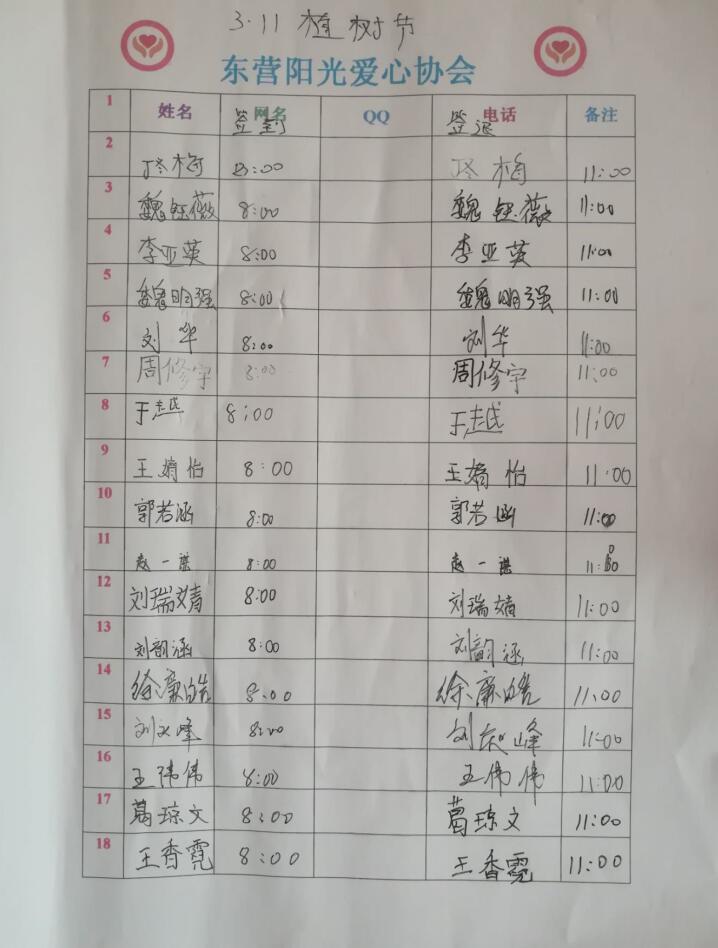 3.11 植树节
东营阳光爱心协会
1 姓名 网名 签到 QQ 电话 签退 备注
2 佟梅 8:00 佟梅 11:00
3 魏钰薇 8:00 魏钰薇 11:00
4 李亚英 8:00 李亚英 11:00
5 魏明强 8:00 魏明强 11:00
6 刘华 8:00 刘华 11:00
7 周修宇 8:00 周修宇 11:00
8 于越 8:00 于越 11:00
9 王婧怡 8:00 王婧怡 11:00
10 郭若涵 8:00 郭若涵 11:00
11 赵一 8:00 赵一 11:00
12 刘瑞婧 8:00 刘瑞婧 11:00
13 刘韵涵 8:00 刘韵涵 11:00
14 徐廉皓 8:00 徐廉皓 11:00
15 刘 峰 8:00 刘 峰 11:00
16 王伟伟 8:00 王伟伟 11:00
17 葛琼文 8:00 葛琼文 11:00
18 王香霓 8:00 王香霓 11:00